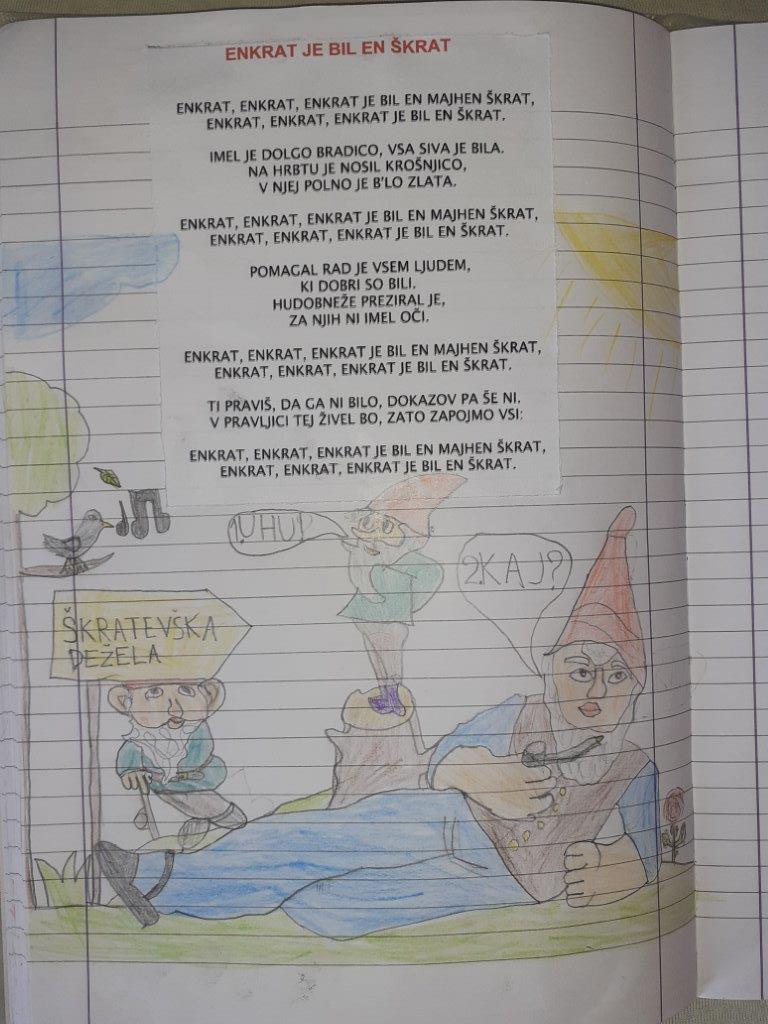 ENKRAT JE BIL EN ŠKRAT
ENKRAT, ENKRAT, ENKRAT JE BIL EN MAJHEN ŠKRAT,
ENKRAT, ENKRAT, ENKRAT JE BIL EN ŠKRAT.
IMEL JE DOLGO BRADICO, VSA SIVA JE BILA.
NA HRBTU JE NOSIL KROŠNJICO,
V NJEJ POLNO JE B'LO ZLATA.
ENKRAT, ENKRAT, ENKRAT JE BIL EN MAJHEN ŠKRAT,
ENKRAT, ENKRAT, ENKRAT JE BIL EN ŠKRAT.
POMAGAL RAD JE VSEM LJUDEM,
KI DOBRI SO BILI.
HUDOBNEŽE PREZIRAL JE,
ZA NJIH NI IMEL OČI.
ENKRAT, ENKRAT, ENKRAT JE BIL EN MAJHEN ŠKRAT,
ENKRAT, ENKRAT, ENKRAT JE BIL EN ŠKRAT.
TI PRAVIŠ, DA GA NI BILO, DOKAZOV PA ŠE NI.
V PRAVLJICI TEJ ŽIVEL BO, ZATO ZAPOJMO VSI:
ENKRAT, ENKRAT, ENKRAT JE BIL EN MAJHEN ŠKRAT,
ENKRAT, ENKRAT, ENKRAT JE BIL EN ŠKRAT.
1.UHU!
2.KAJ?
ŠKRATEVŠKA
DEŽELA